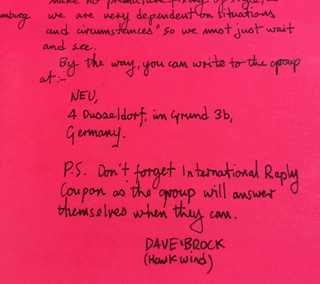 make no premature fixing of style, as
mburg we are very dependent on situations
and circumstances" so we must just wait
and see.
By the way, you can write to the group
at:-
NEU,
4 Dusseldorf, in Grund 3b,
Germany.
P.S. Don't forget International Reply
Coupon as the group will answer
themselves when they can.
DAVE BROCK
(Hawkwind)